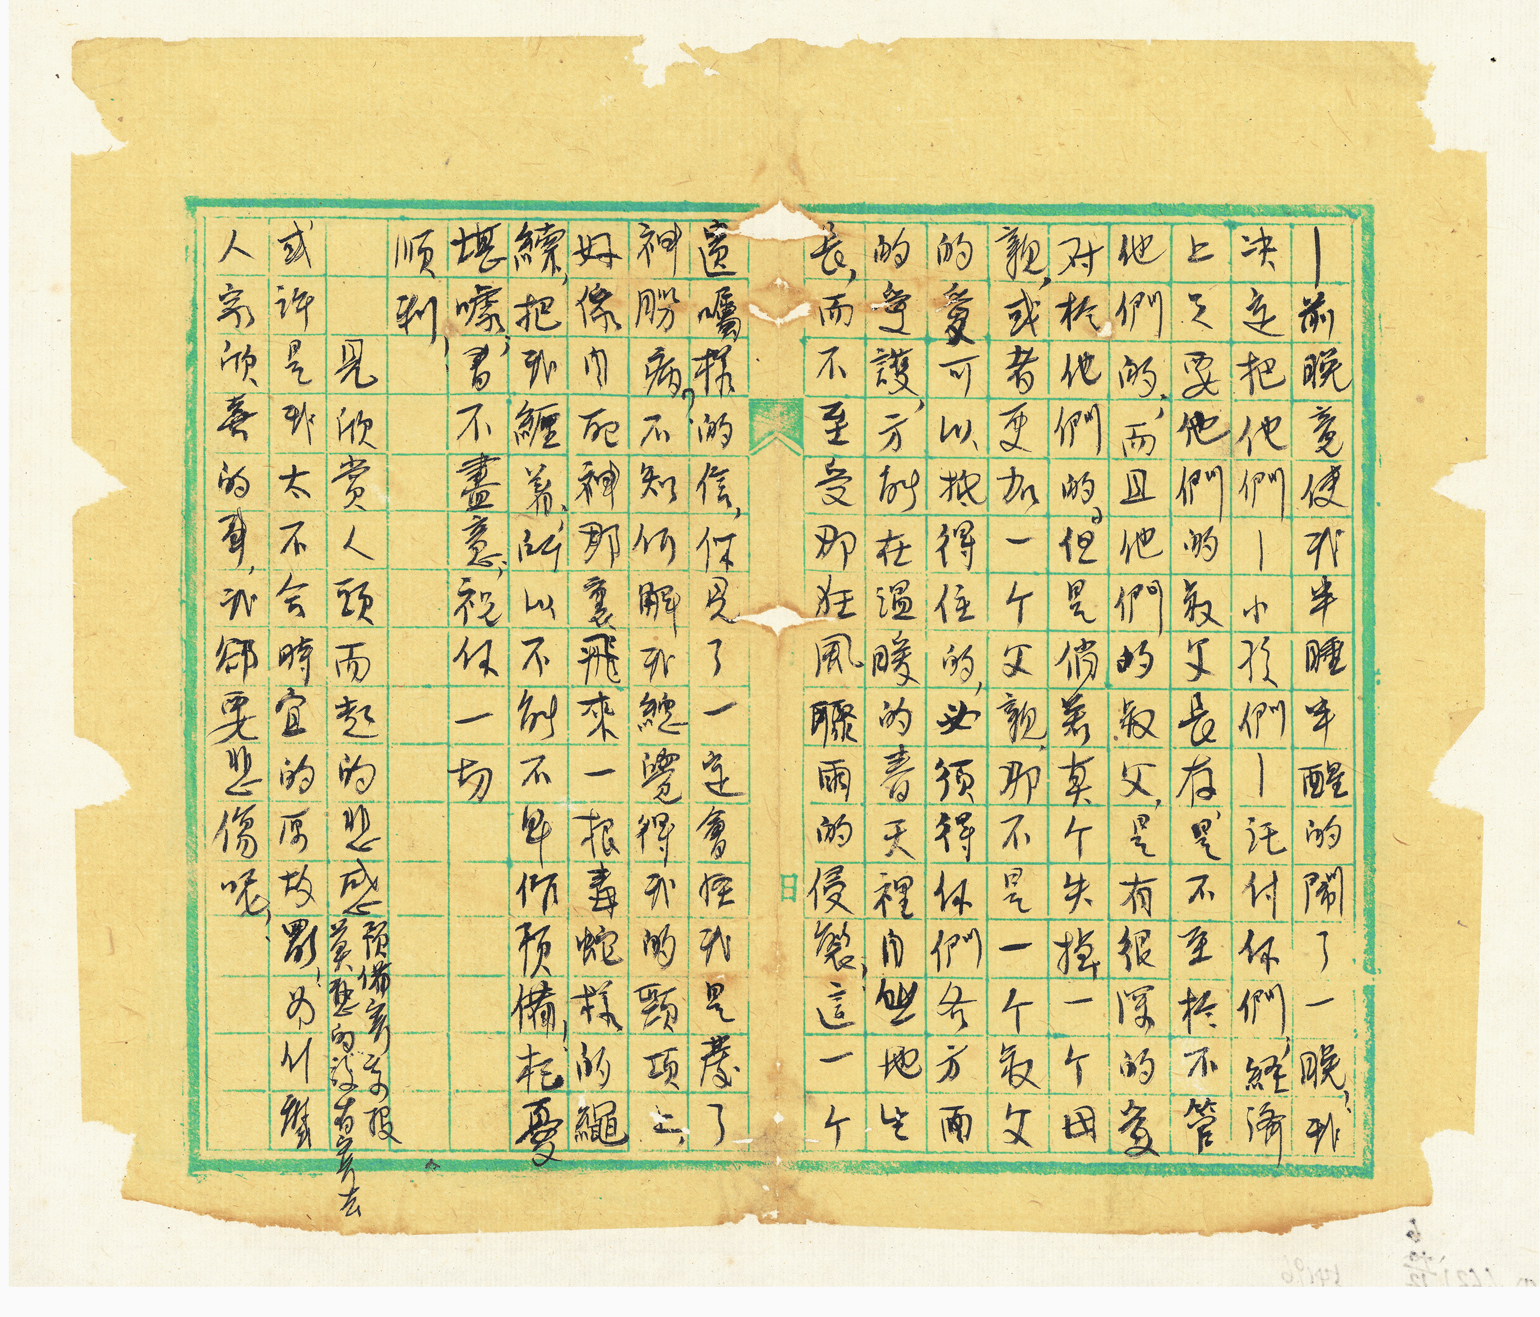 —前晚竟使我半睡半醒的鬧了一晚，我
决定把他們—小孩們—託付你們，經濟
上只要他們的叔父長存，是不至於不管
他們的，而且他們的叔父，是有很深的愛
对於他們的。但是倘若真个失掉一个母
親，或者更加一个父親，那不是一个叔父
的愛可以抵得住的，必須得你們各方面
的愛護，方能在溫暖的春天裡自然地生
長，而不至受那狂風驟雨的侵襲，這一个
遺囑樣的信，你見了一定會怪我是發了
神經病？不知何解，我總覺得我的頸項上，
好像自死神那裏飛來一根毒蛇樣的繩
縤，把我纏着，所以不能不早作預備，杞憂
堪嚎，書不盡意，祝你一切
順利，
見欣賞人頭而起的悲感
預備寄京报
莫愁的没有寄去
或許是我太不合時宜的原故罷！为什麼
人家欣喜的事，我卻要悲傷呢，